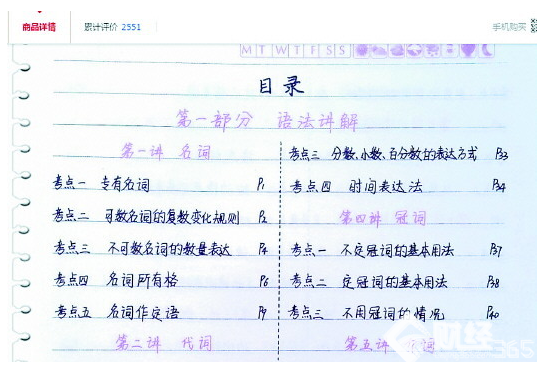 商品详情
累计评价 2551
手机购买
M T W T F S S
目录
第一部分 语法讲解
第一讲 名词
考点一 专有名词 P1
考点二 可数名词的复数变化规则 P2
考点三 不可数名词的数量表达 P4
考点四 名词所有格 P6
考点五 名词作定语 P9
第二讲 代词
考点三 分数、小数、百分数的表达方式 P33
考点四 时间表达法 P34
第四讲 冠词
考点一 不定冠词的基本用法 P37
考点二 定冠词的基本用法 P38
考点三 不用冠词的情况 P40
第五讲
财经365